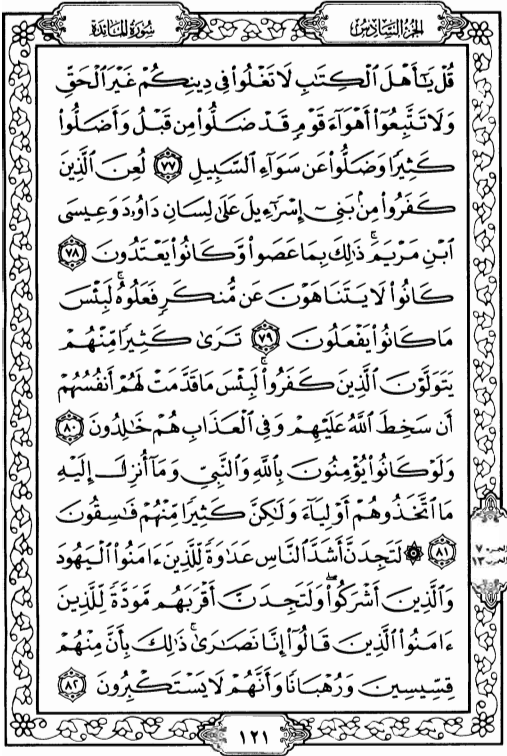 الجزء السادس
سورة المائدة
قُلۡ يَٰٓأَهۡلَ ٱلۡكِتَٰبِ لَا تَغۡلُواْ فِي دِينِكُمۡ غَيۡرَ ٱلۡحَقِّ
وَلَا تَتَّبِعُوٓاْ أَهۡوَآءَ قَوۡمٖ قَدۡ ضَلُّواْ مِن قَبۡلُ وَأَضَلُّواْ
كَثِيرٗا وَضَلُّواْ عَن سَوَآءِ ٱلسَّبِيلِ ٧٧ لُعِنَ ٱلَّذِينَ
كَفَرُواْ مِنۢ بَنِيٓ إِسۡرَٰٓءِيلَ عَلَىٰ لِسَانِ دَاوُۥدَ وَعِيسَى
ٱبۡنِ مَرۡيَمَۚ ذَٰلِكَ بِمَا عَصَواْ وَّكَانُواْ يَعۡتَدُونَ ٧٨
كَانُواْ لَا يَتَنَاهَوۡنَ عَن مُّنكَرٖ فَعَلُوهُۚ لَبِئۡسَ
مَا كَانُواْ يَفۡعَلُونَ ٧٩ تَرَىٰ كَثِيرٗا مِّنۡهُمۡ
يَتَوَلَّوۡنَ ٱلَّذِينَ كَفَرُواْۚ لَبِئۡسَ مَا قَدَّمَتۡ لَهُمۡ أَنفُسُهُمۡ
أَن سَخِطَ ٱللَّهُ عَلَيۡهِمۡ وَفِي ٱلۡعَذَابِ هُمۡ خَٰلِدُونَ ٨٠
وَلَوۡ كَانُواْ يُؤۡمِنُونَ بِٱللَّهِ وَٱلنَّبِيِّ وَمَآ أُنزِلَ إِلَيۡهِ
مَا ٱتَّخَذُوهُمۡ أَوۡلِيَآءَ وَلَٰكِنَّ كَثِيرٗا مِّنۡهُمۡ فَٰسِقُونَ
٨١ ۞ لَتَجِدَنَّ أَشَدَّ ٱلنَّاسِ عَدَٰوَةٗ لِّلَّذِينَ ءَامَنُواْ ٱلۡيَهُودَ
وَٱلَّذِينَ أَشۡرَكُواْۖ وَلَتَجِدَنَّ أَقۡرَبَهُم مَّوَدَّةٗ لِّلَّذِينَ
ءَامَنُواْ ٱلَّذِينَ قَالُوٓاْ إِنَّا نَصَٰرَىٰۚ ذَٰلِكَ بِأَنَّ مِنۡهُمۡ
قِسِّيسِينَ وَرُهۡبَانٗا وَأَنَّهُمۡ لَا يَسۡتَكۡبِرُونَ ٨٢
الجزء ٧
الحزب ١٣
١٢١